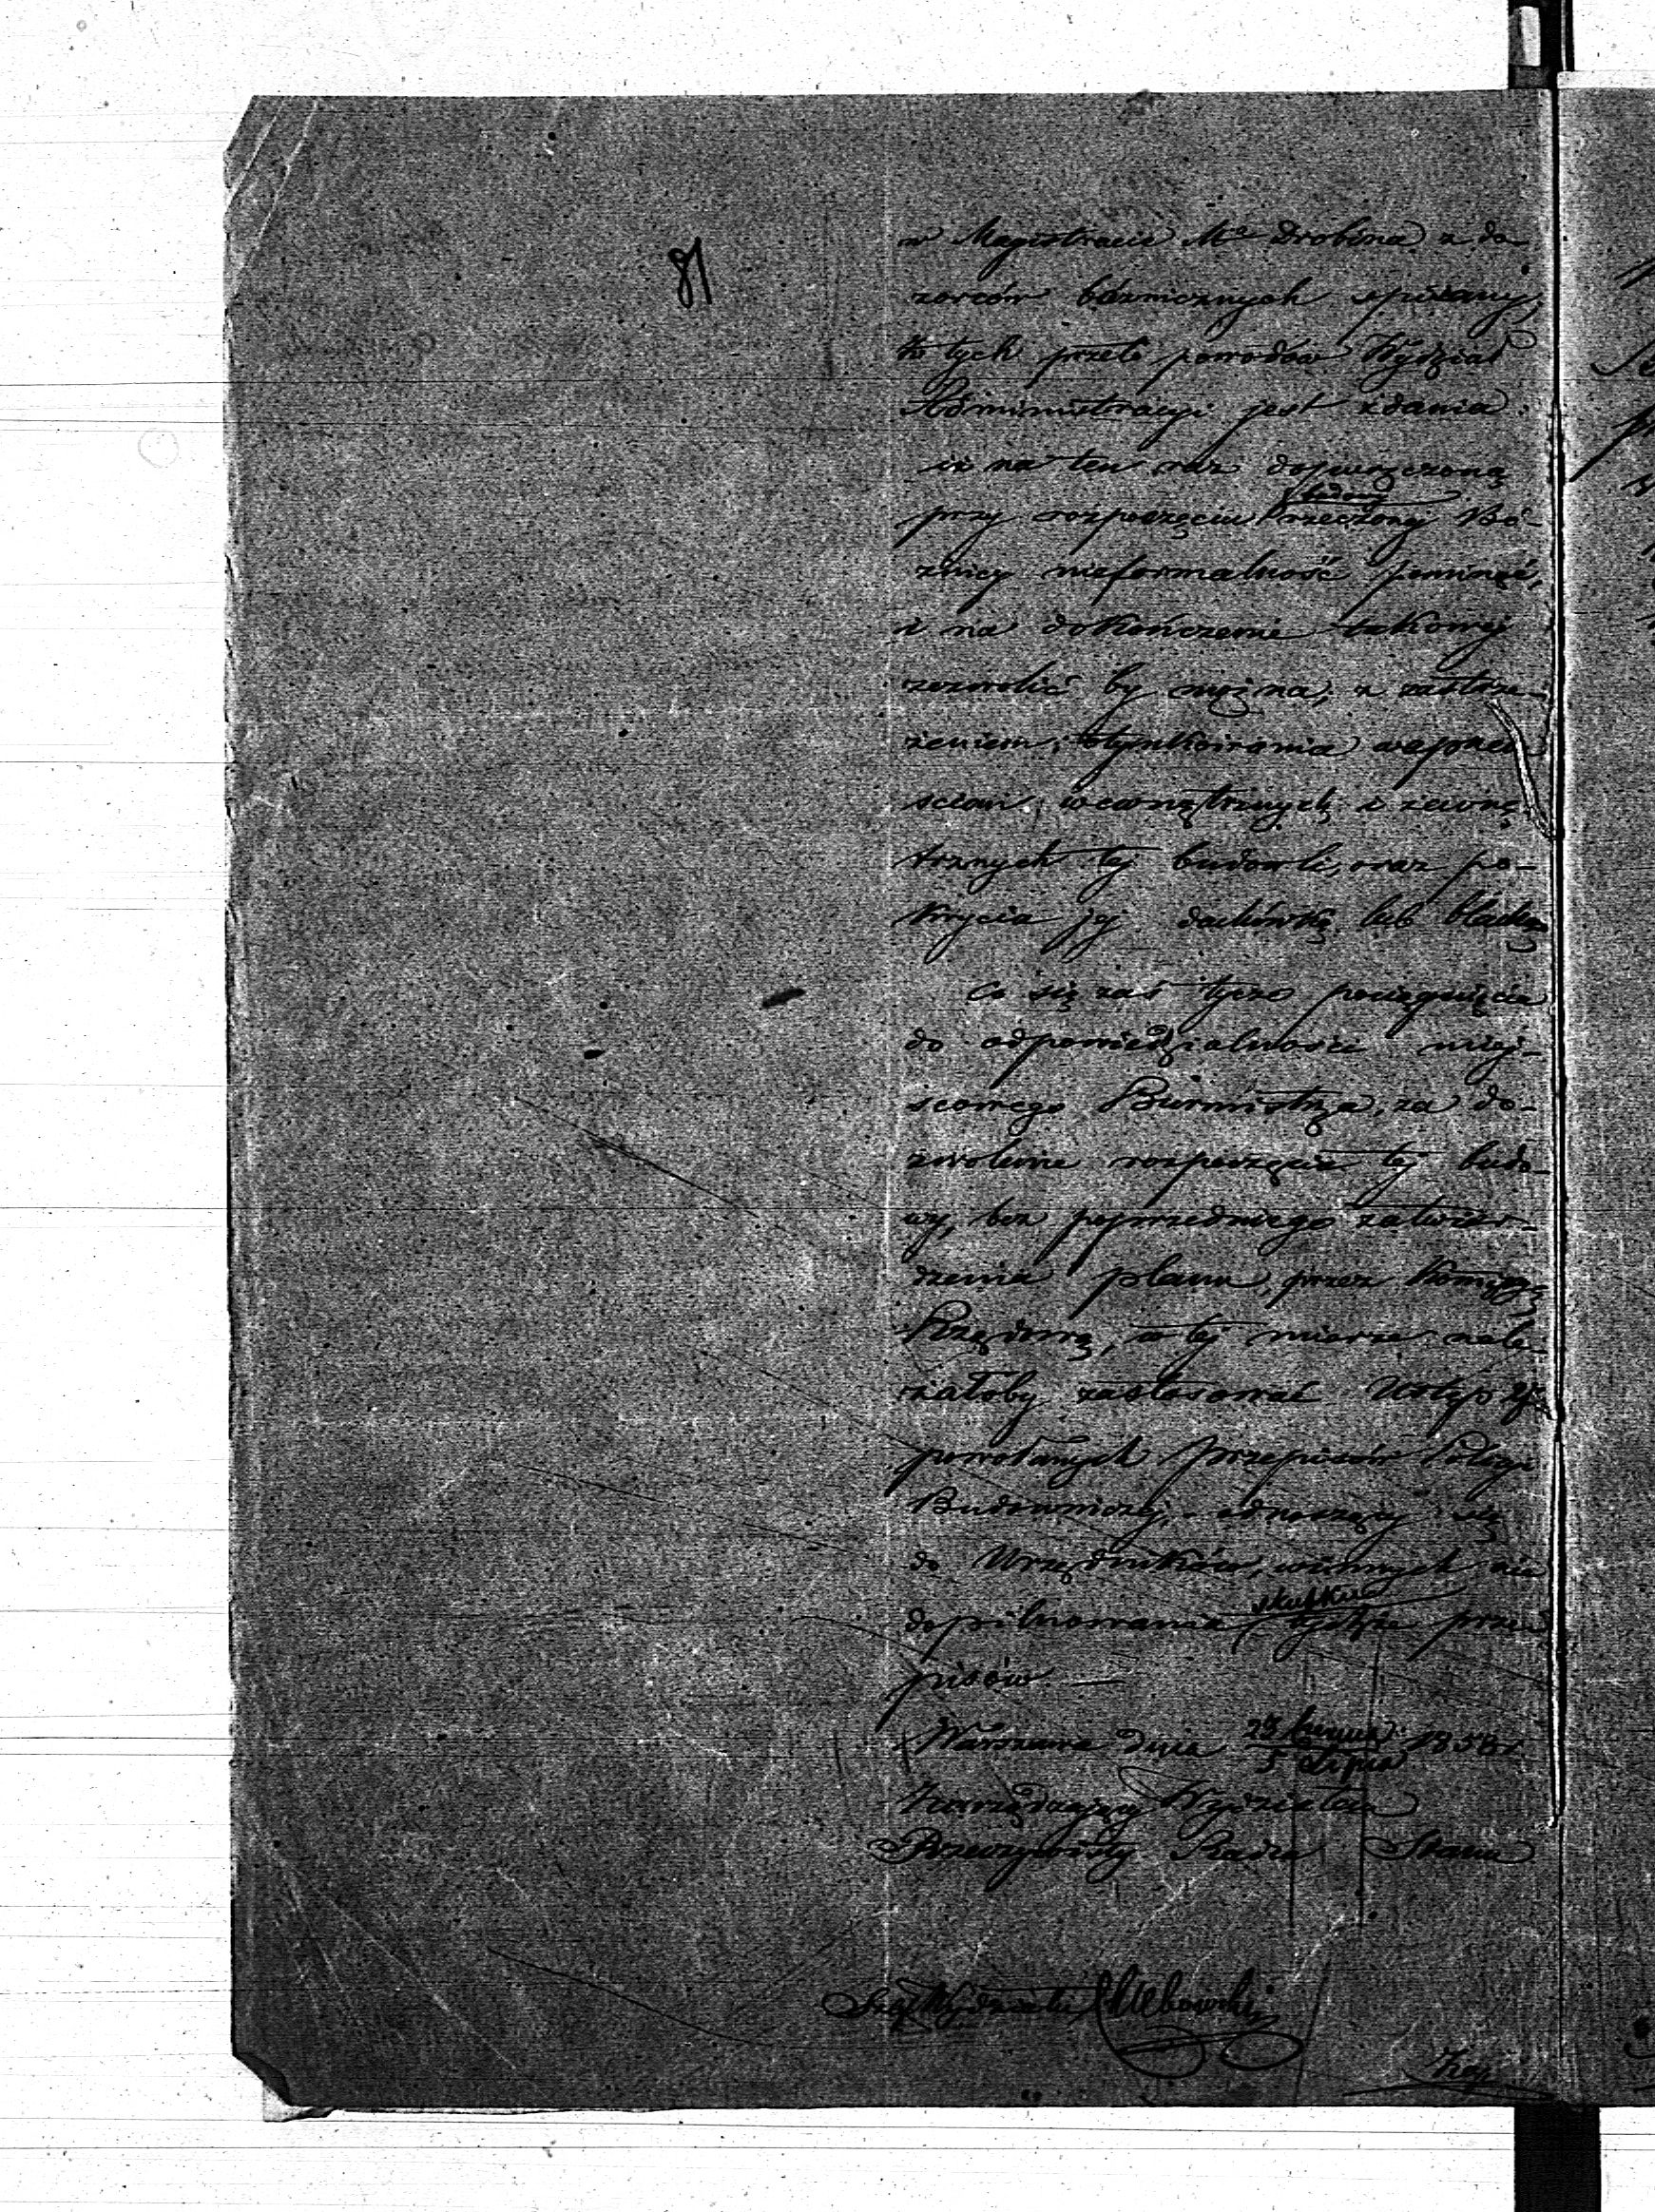 81
w Magistracie Mta Drobina z do
zorców bóżnicznych spisany;
Z tych przeto powodów Wydział
Administracyi jest zdania:
iż na ten raz dopuszczoną
budowy
przy rozpoczęciu rzeczonej Bó-
żnicy nieformalność pominąć,
i na dokończenie takowej
zezwolić by można, z zastrze-
żeniem: otynkowania
ścian wewnętrznych i zewnę
trznych tej budowli, oraz po-
krycia jej dachówką lub blachą
Co się zaś tycze pociągnięcia
do odpowiedzialności miej-
scowego Burmistrza, za do-
zwolenie rozpoczęcia tej budo-
wy, bez poprzedniego zatwier-
dzenia planu, przez Komissyą
Rządową, w tej mierze nale-
żałoby zastosować Ustęp
powołanych przepisów Policyi
Budowniczej, odnoszący się
do Urzędników, winnych nie
skutku
dopilnowania tychże prze
pisów —
Warszawa dnia 23 Czerwca / 5 Lipca 1858 r
Zarządzający Wydziałem
Rzeczywisty Radca Stanu
Szef Wydziału